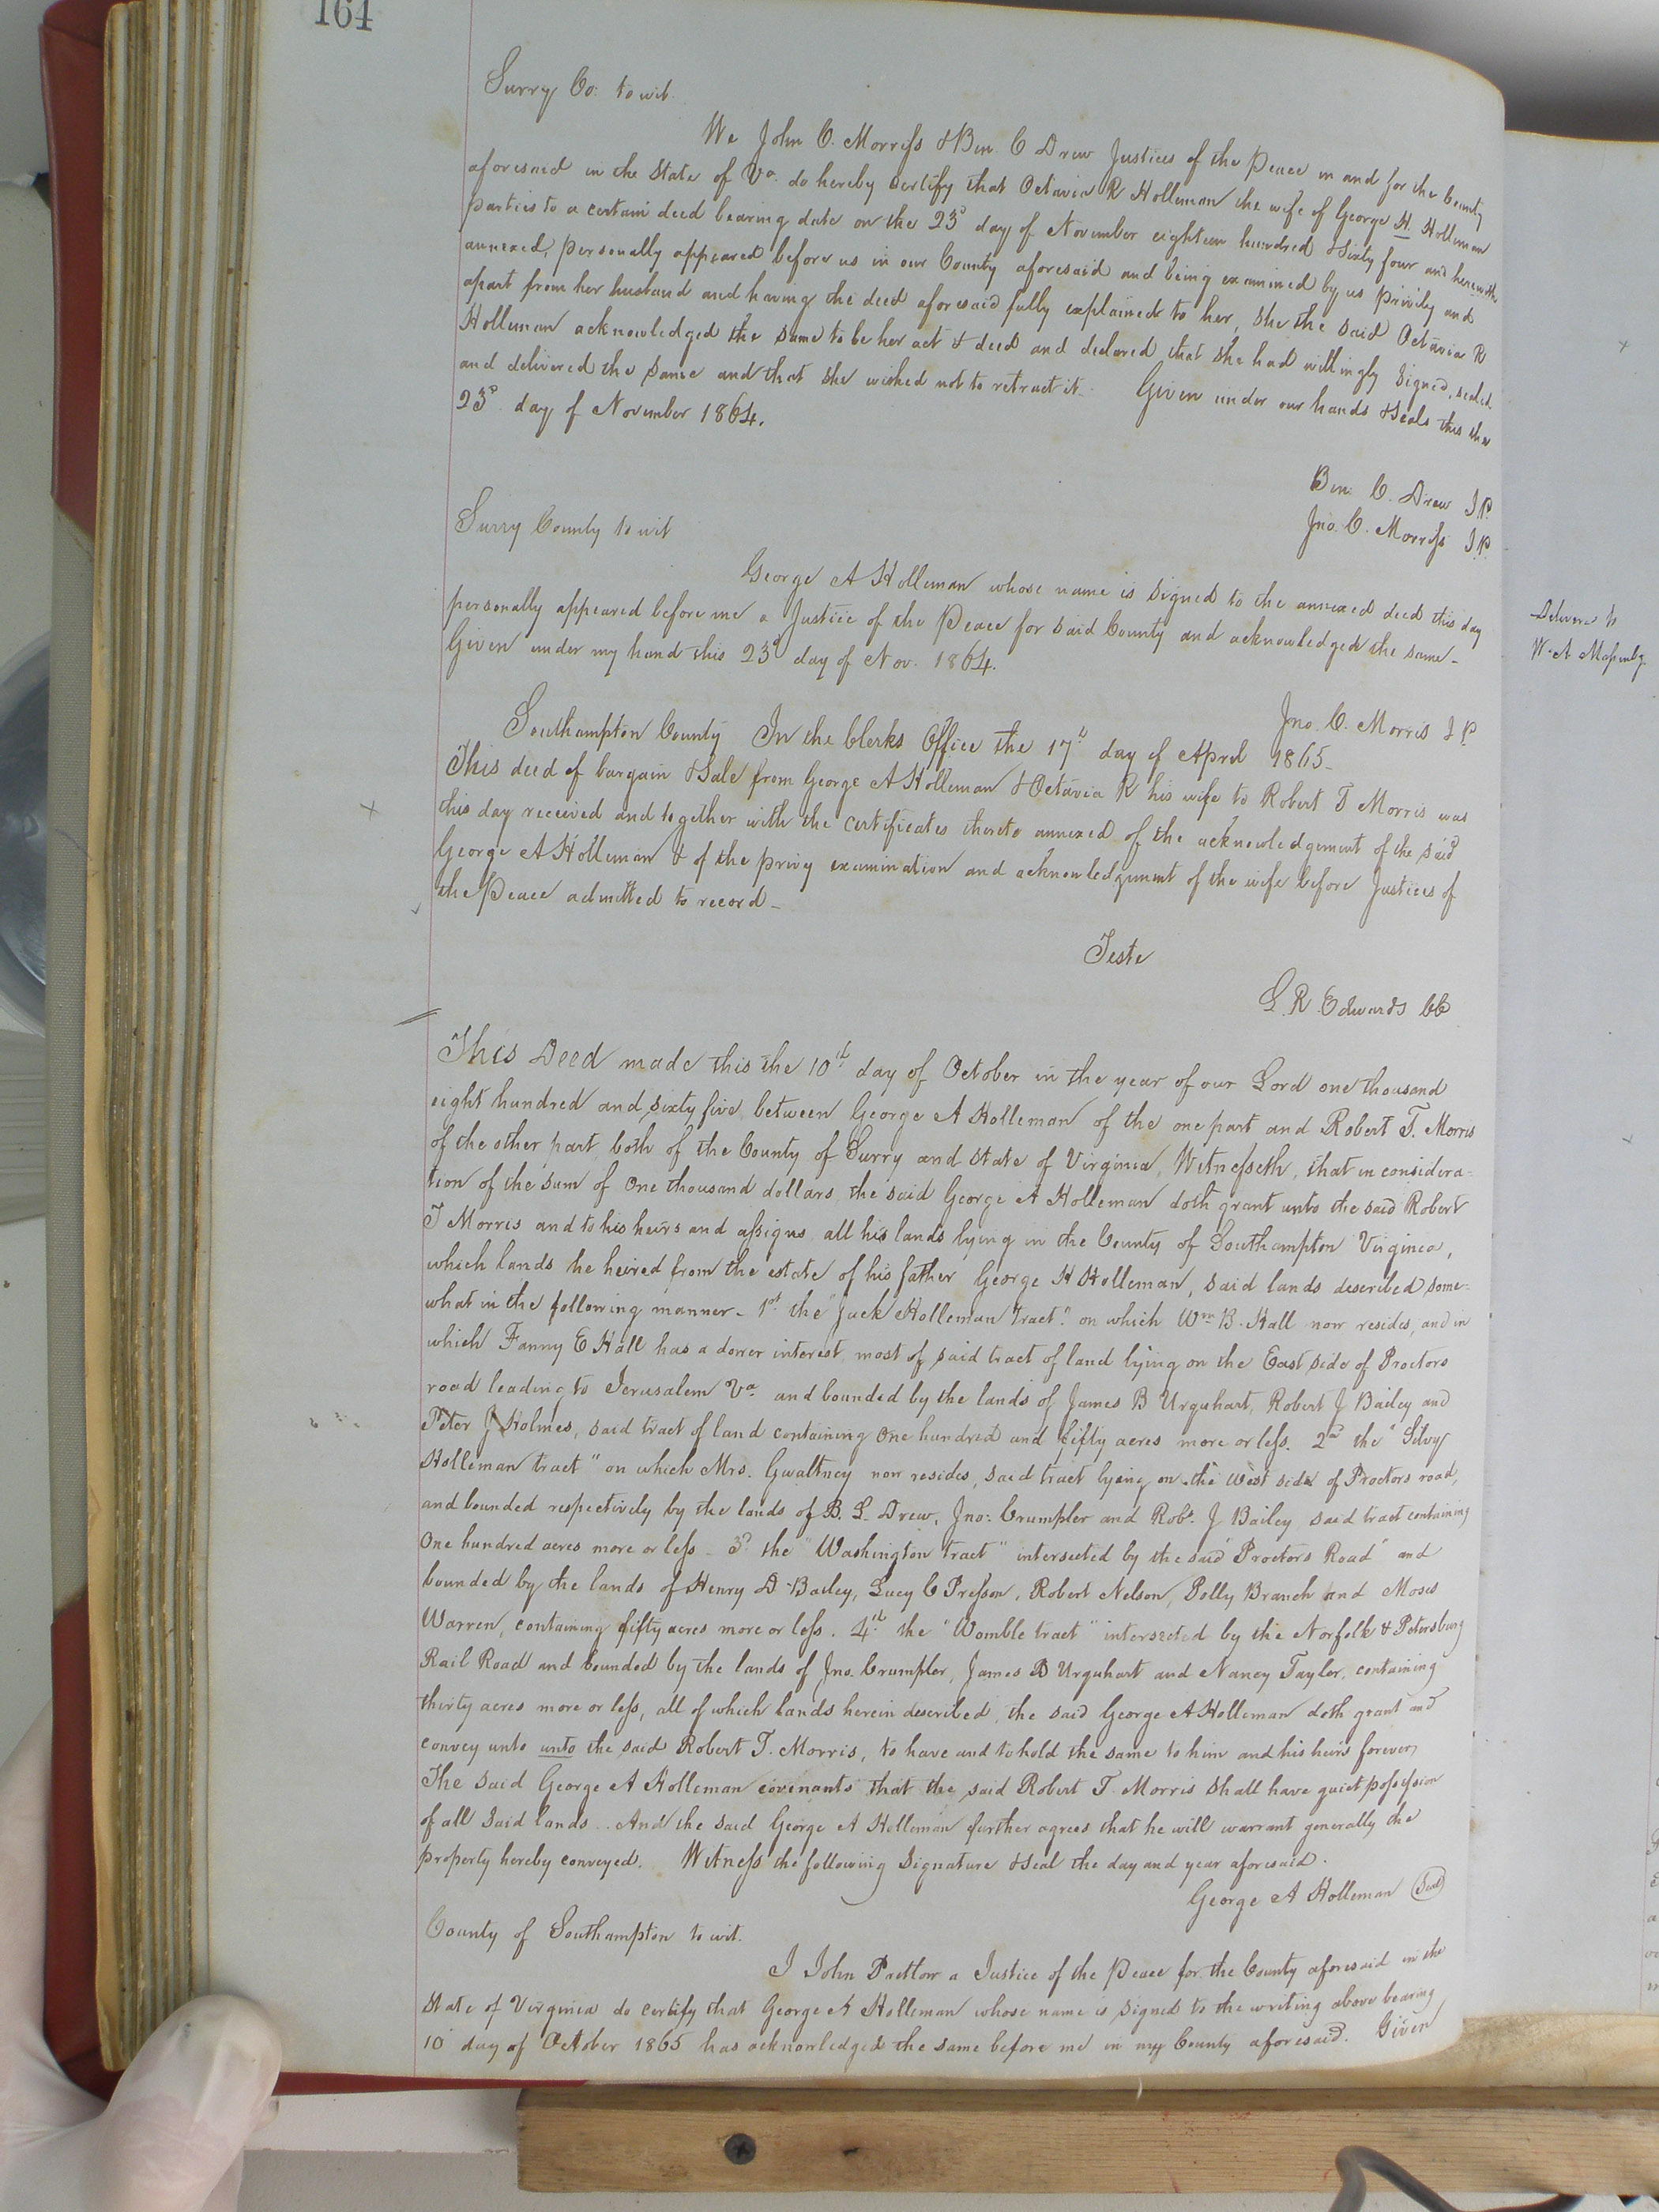 164
Surry Co. to wit.
We John C. Morriss & Ben. C Drew Justices of the Peace in and for the County
aforesaid in the State of Va. do hereby certify that Octavia R Holleman the wife of George H. Holleman
parties to a certain deed bearing date on the 23d day of November eighteen hundred & Sixty four and herewith
annexed, personally appeared before us in our County aforesaid and being examined by us privily and
apart from her husband and having the deed aforesaid fully explained to her, she the said Octavia R
Holleman acknowledged the same to be her act & deed and declared that she had willingly signed, sealed
and delivered the same and that she wished not to retract it. Given under our hands & Seals this the
23d day of November 1864.
Ben. C. Drew J.P.
Jno. C. Morriss J.P.
Surry County to wit
George A Holleman whose name is signed to the annexed deed this day
personally appeared before me a Justice of the Peace for said County and acknowledged the same-
Given under my hand this 23d day of Nov. 1864.
Jno. C. Morris J P.
Southampton County In the Clerks Office the 17th day of April 1865-
This deed of bargain & Sale from George A Holleman & Octavia R his wife to Robert T Morris was
this day received and together with the certificates thereto annexed of the acknowledgement of the said
George A Holleman & of the privy examination and acknowledgment of the wife before Justices of
the Peace admitted to record-
Teste
L. R. Edwards CC
This Deed made this the 10th day of October in the year of our Lord one thousand
eight hundred and sixty five between George A Holleman of the one part and Robert T. Morris
of the other part, both of the County of Surry and State of Virginia, Witnesseth, that in considera-
tion of the sum of One thousand dollars, the said George A Holleman doth grant unto the said Robert
T Morris and to his heirs and assigns all his lands lying in the County of Southampton Virginia,
which lands he heired from the estate of his father George H Holleman, said lands described some-
what in the following manner- 1st the "Jack Holleman tract" on which Wm B. Hall now resides, and in
which Fanny E Hall has a dower interest, most of said tract of land lying on the East side of Proctors
road leading to Jerusalem Va. and bounded by the lands of James B Urquhart, Robert J Bailey and
Peter J Holmes, said tract of land containing One hundred and fifty acres more or less. 2nd the "Silvy
Holleman tract" on which Mrs. Gwaltney now resides, said tract lying on the West side of Proctors road,
and bounded respectively by the lands of B. L. Drew, Jno: Crumpler and Robt. J Bailey said tract containing
One hundred acres more or less - 3d. the "Washington tract" intersected by the said Proctors Road and
bounded by the lands of Henry D Bailey, Lucy C Presson, Robert Nelson, Polly Branch and Moses
Warren, containing fifty acres more or less. 4th the "Womble tract" intersected by the Norfolk & Petersburg
Rail Road and bounded by the lands of Jno. Crumpler, James B Urquhart and Nancy Taylor, containing
thirty acres more or less, all of which lands herein described, the said George A Holleman doth grant and
convey unto unto the said Robert T. Morris, to have and to hold the same to him and his heirs forever,
The said George A Holleman covenants that the said Robert T Morris shall have quiet possession
of all said lands. And the said George A Holleman further agrees that he will warrant generally the
property hereby conveyed. Witness the following Signature & Seal the day and year aforesaid.
George A Holleman Seal
County of Southampton to wit.
I John Pretlow a Justice of the Peace for the County aforesaid in the
State of Virginia do certify that George A Holleman whose name is signed to the writing above bearing
10 day of October 1865 has acknowledged the same before me in my County aforesaid. Given
W. A.